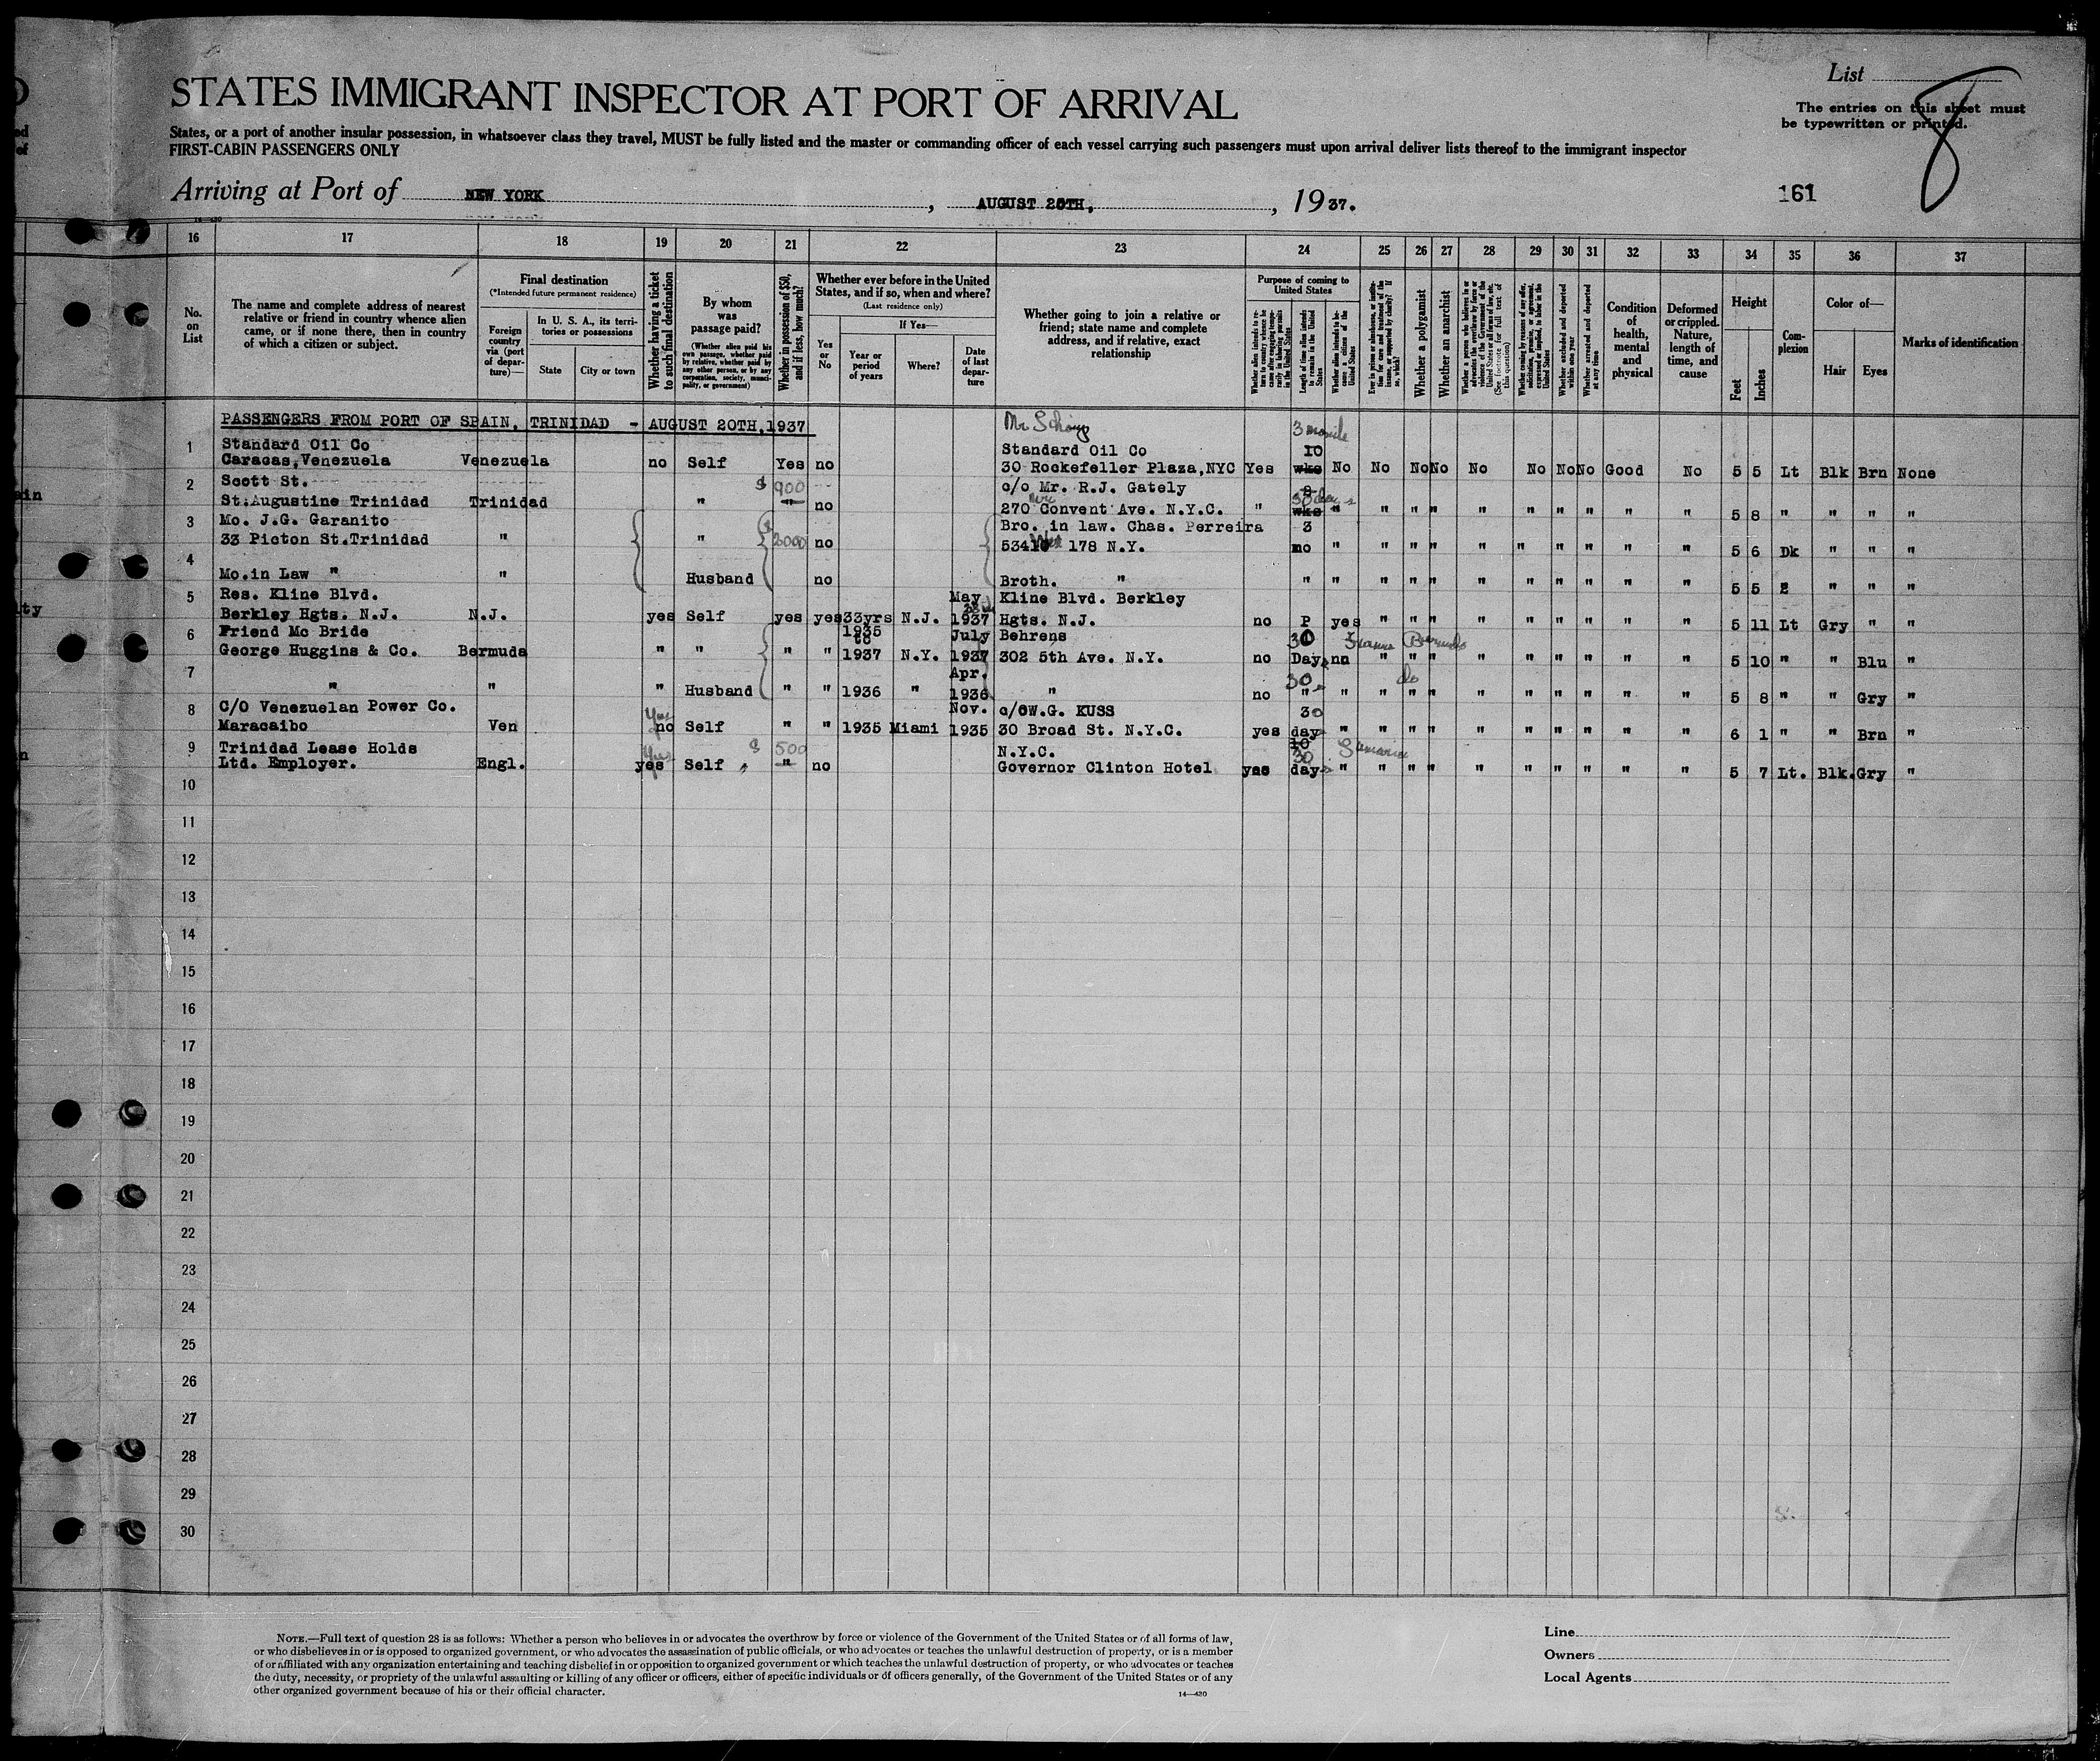 List
STATES IMMIGRANT INSPECTOR AT PORT OF ARRIVAL
The entries on this sheet must
be typewritten or printed.
8
States, or a port of another insular possession, in whatsoever class they travel, MUST be fully listed and the master or commanding officer of each vessel carrying such passengers must upon arrival deliver lists thereof to the immigrant inspector
FIRST-CABIN PASSENGERS ONLY
Arriving at Port of NEW YORK, AUGUST 28TH, , 1937.
161
16 17 18 19 20 21 22 23 24 25 26 27 28 29 30 31 32 33 34 35 36 37
No. on List
The name and complete address of nearest relative or friend in country whence alien came, or if none there, then in country of which a citizen or subject.
Final destination
(*Intended future permanent residence)
Foreign country via (port of departure)—
In U. S. A., its territories or possessions
State
City or town
Whether having a ticket to such final destination
By whom was passage paid?
(Whether alien paid his own passage, whether paid by relative, whether paid by any other person, or by any corporation, society, municipality, or government)
Whether in possession of $50, and if less, how much?
Whether ever before in the United States, and if so, when and where?
(Last residence only)
Yes or No
If Yes—
Year or period of years
Where?
Date of last departure
Whether going to join a relative or friend; state name and complete address, and if relative, exact relationship
Purpose of coming to United States
Length of time alien intends to remain in the United States
Whether alien intends to become a citizen of the United States
Whether a polygamist
Whether an anarchist
(See footnote for full text of this question)
Whether excluded and deported within one year
Whether arrested and deported at any time
Condition of health, mental and physical
Deformed or crippled. Nature, length of time, and cause
Height
Feet
Inches
Complexion
Color of—
Hair
Eyes
Marks of identification
PASSENGERS FROM PORT OF SPAIN, TRINIDAD - AUGUST 20TH,1937
3 months
1 Standard Oil Co Standard Oil Co 10
Caracas,Venezuela Venezuela no Self Yes no 30 Rockefeller Plaza,NYC Yes wks No No No No No No No No Good No 5 5 Lt Blk Brn None
2 Scott St. $ 900 c/o Mr. R.J. Gately
St.Augustine Trinidad Trinidad " " no 270 Convent Ave. N.Y.C. " 30 days wks " " " " " " " " " " 5 8 " " " "
3 Mo. J.G. Garanito Bro. in law. Chas. Perreira 3
33 Picton St.Trinidad " " 2000 no 534 West 178 N.Y. mo " " " " " " " " " " 5 6 Dk " " "
4
Mo.in Law " " Husband no Broth. " " " " " " " " " " " " 5 5 " " "
5 Res. Kline Blvd. May Kline Blvd. Berkley
Berkley Hgts. N.J. N.J. yes Self yes yes 33yrs N.J. 1937 Hgts. N.J. no P yes " " " " " " " " " 5 11 Lt Gry " "
6 Friend Mc Bride 1935 to July Behrens 30 Bermuda
George Huggins & Co. Bermuda " " " " 1937 N.Y. 1937 302 5th Ave. N.Y. no Days no " " " " " " " " " 5 10 " " Blu "
7 Apr. 30 do
" " " Husband " " 1936 " 1936 " no " " " " " " " " " " " 5 8 " " Gry "
8 C/O Venezuelan Power Co. Yes Nov. c/o W.G. KUSS 30
Maracaibo Ven no Self " " 1935 Miami 1935 30 Broad St. N.Y.C. yes days " " " " " " " " " " 6 1 " " Brn "
9 Trinidad Lease Holds Yes $ 500 N.Y.C. 10 30
Ltd. Employer. Engl. yes Self " no Governor Clinton Hotel yes days " " " " " " " " " " 5 7 Lt. Blk. Gry "
10
11
12
13
14
15
16
17
18
19
20
21
22
23
24
25
26
27
28
29
30
NOTE.—Full text of question 28 is as follows: Whether a person who believes in or advocates the overthrow by force or violence of the Government of the United States or of all forms of law,
or who disbelieves in or is opposed to organized government, or who advocates the assassination of public officials, or who advocates or teaches the unlawful destruction of property, or is a member
of or affiliated with any organization entertaining and teaching disbelief in or opposition to organized government or which teaches the unlawful destruction of property, or who advocates or teaches
the duty, necessity, or propriety of the unlawful assaulting or killing of any officer or officers, either of specific individuals or of officers generally, of the Government of the United States or of any
other organized government because of his or their official character.
14—430
Line
Owners
Local Agents